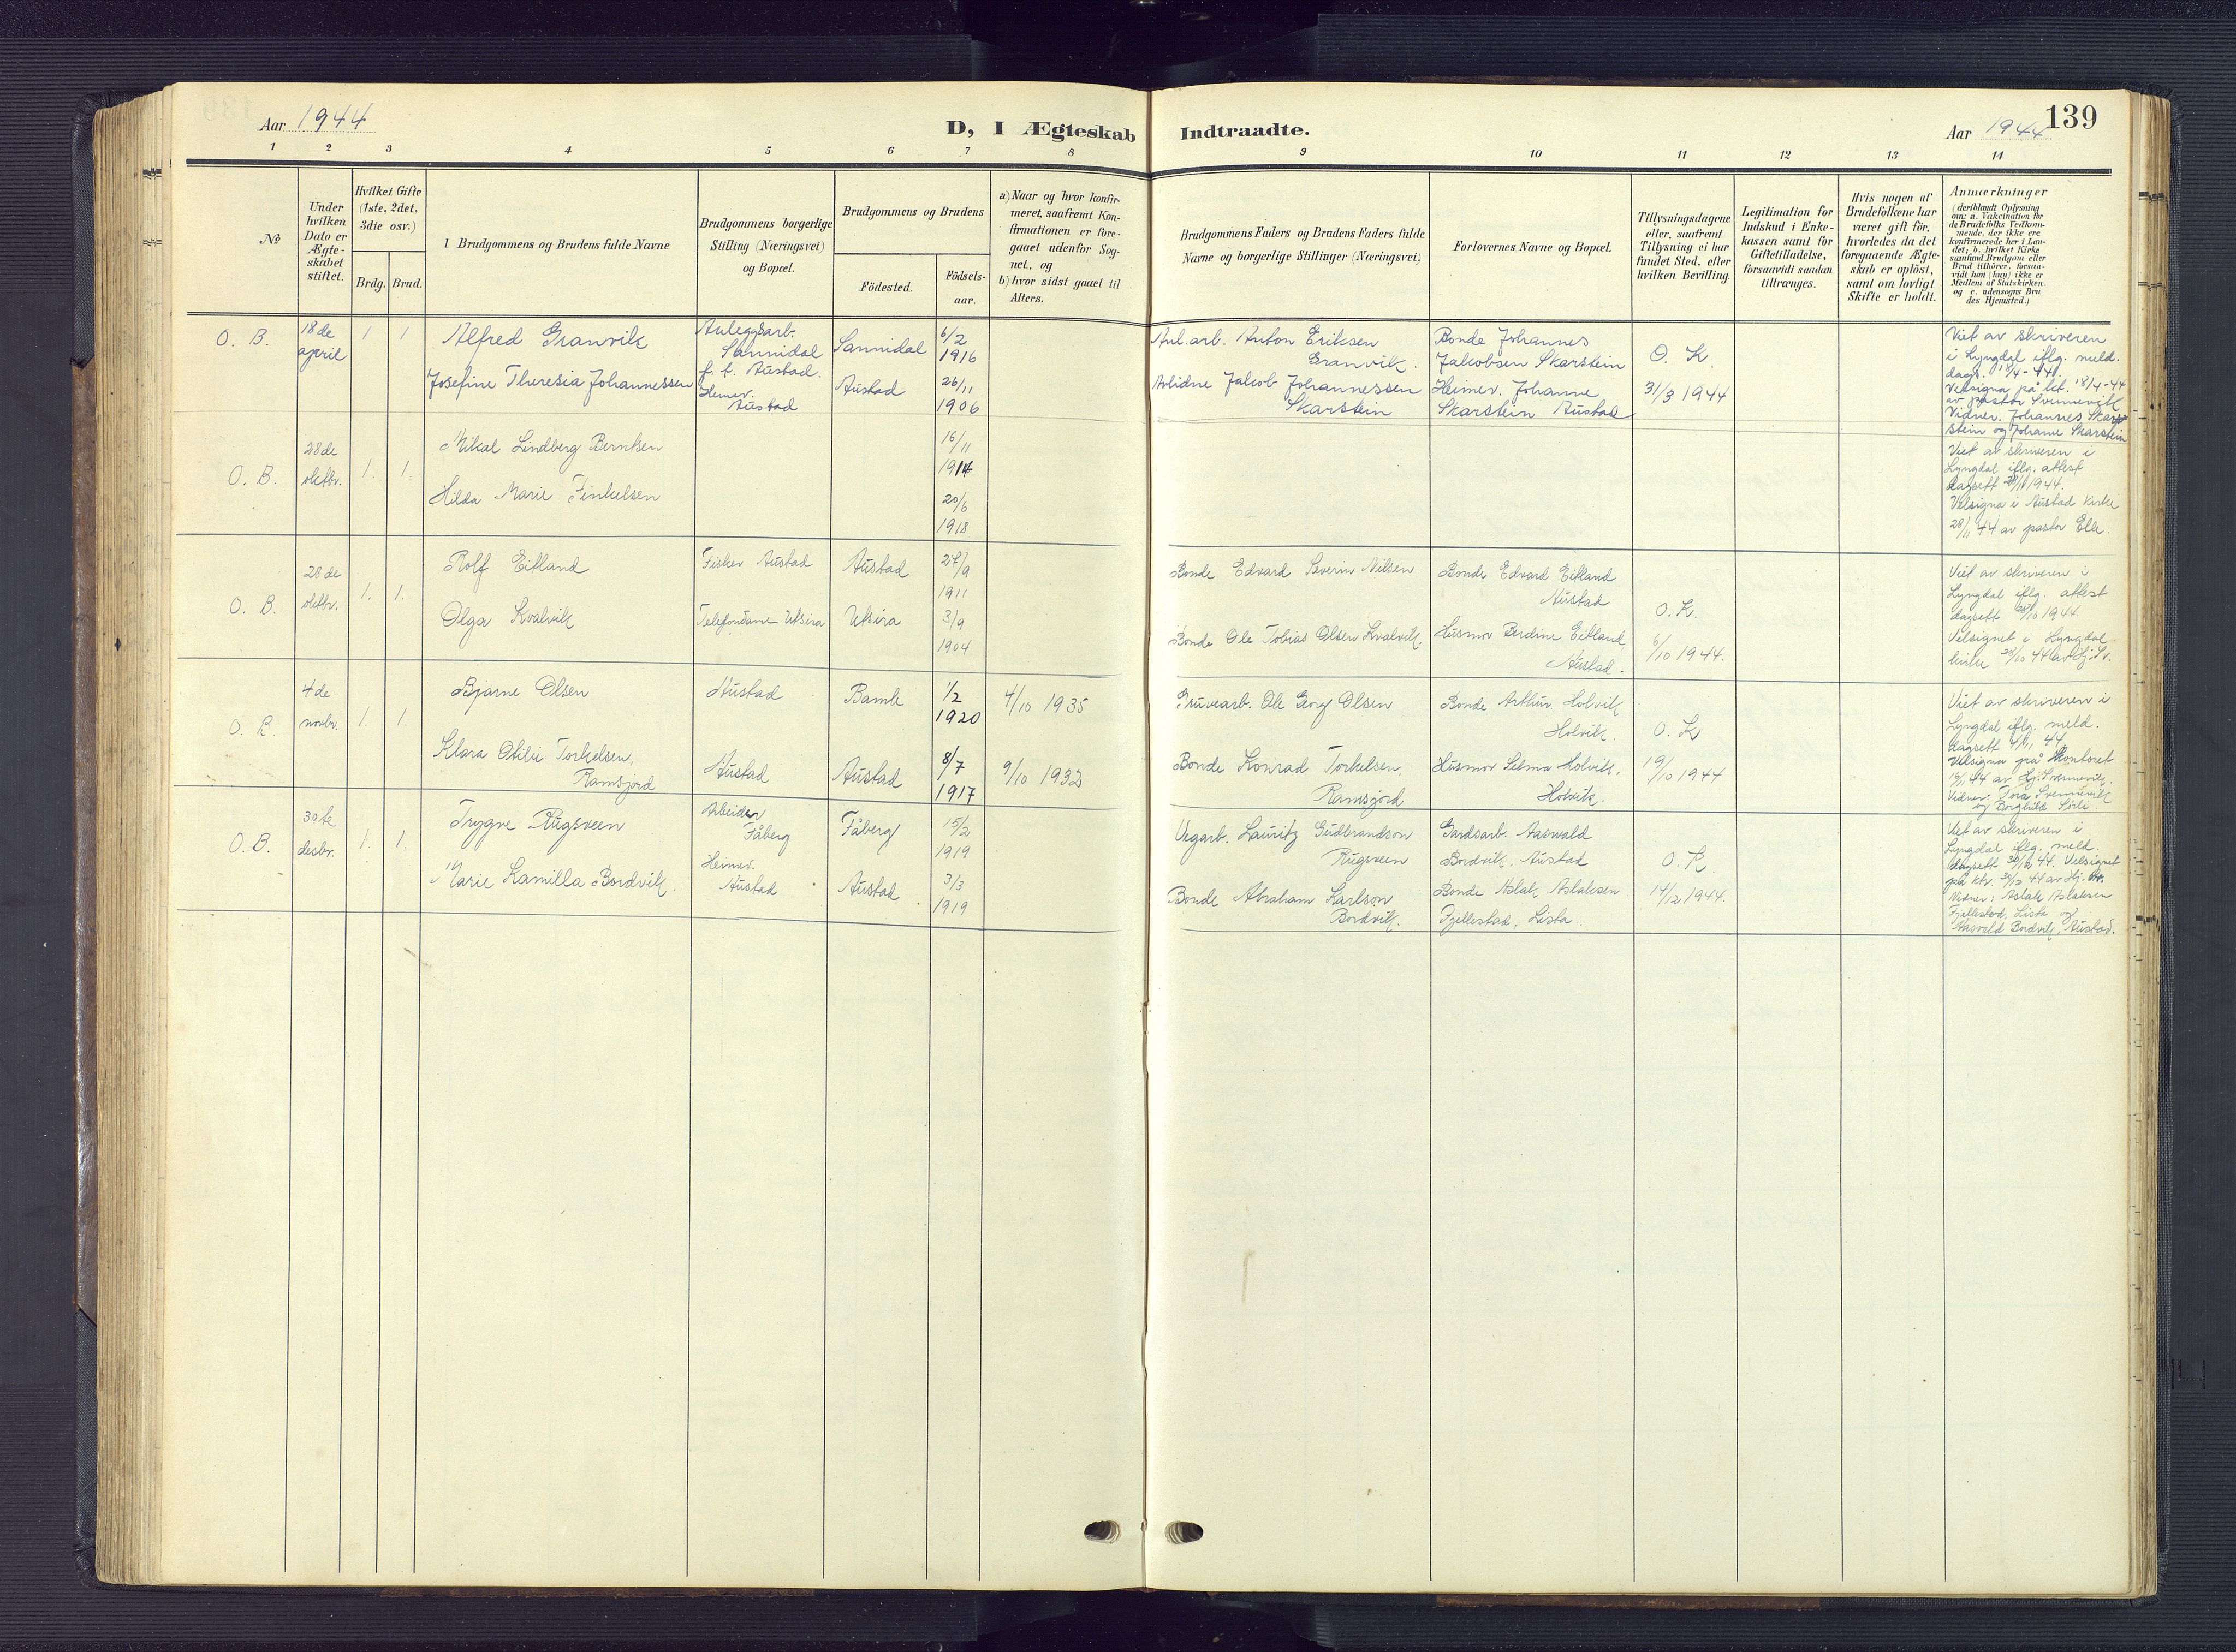 139
Aar 1944
D, I Ægteskab Indtraadte.
Aar 1944
1 2 3 4 5 6 7 8 9 10 11 12 13 14
No
Under
hvilken
Dato er
Ægte-
skabet
stiftet.
Hvilket Gifte
(1ste, 2det,
3die osv.)
Brdg. Brud.
1 Brudgommens og Brudens fulde Navne
Brudgommens borgerlige
Stilling (Næringsvei)
og Bopæl.
Brudgommens og Brudens
Födested.
Födsels-
aar.
a) Naar og hvor konfir-
meret, saafremt Kon-
firmationen er fore-
gaaet udenfor Sog-
net, og
b) hvor sidst gaaet til
Alters.
Brudgommens Faders og Brudens Faders fulde
Navne og borgerlige Stillinger (Næringsvei)
Forlovernes Navne og Bopæl.
Tillysningsdagene
eller, saafremt
Tillysning ei har
fundet Sted, efter
hvilken Bevilling.
Legitimation for
Indskud i Enke-
kassen samt for
Giftetilladelse,
forsaavidt saadan
tiltrænges.
Hvis nogen af
Brudefolkene har
været gift för,
hvorledes da det
foregaaende Ægte-
skab er oplöst,
samt om lovligt
Skifte er holdt.
Anmærkninger
(deriblandt Oplysning
om: a. Vakcination for
de Brudefolks Vedkom-
mende, der ikke ere
konfirmerede her i Lan-
det; b. hvilket Kirke
samfund Brudgom eller
Brud tilhører, forsaa-
vidt han (hun) ikke er
Medlem af Statskirken.
og c. udensogns Bru
des Hjemsted.)
O. B.
18de
april
1 1
Alfred Granvik
Josefine Theresia Johannessen
Anleggsarb.
Sannidal
f. t. Austad.
Heimev.
Austad
Sannidal
Austad
6/2
1916
26/11
1906
Anl. arb. Anton Eriksen
Granvik.
Avlidne Jakob Johannessen
Skarstein
Bonde Johannes
Jakobsen Skarstein
Heimev. Johanne
Skarstein Austad
O. K.
31/3 1944
Viet av skriveren
i Lyngdal iflg. meld.
dags. 18/4-44.
Velsigna på kt. 18/4-44
av pastor Svennevik
Vidner. Johannes Skar-
stein og Johanne Skarstein
O. B.
28de
oktbr.
1. 1.
Mikal Lindberg Berntsen
Hilda Marie Finkelsen
16/11
1914
20/6
1918
Viet av skriveren i
Lyngdal iflg. attest
dagsett 28/11 1944.
Velsigna i Austad kirke
28/11 44 av pastor Elle.
O. B.
28de
oktbr.
1. 1.
Rolf Eitland
Olga Kvalvik
Fisker Austad
Telefondame Utsira
Austad
Utsira
27/9
1911
3/9
1904
Bonde Edvard Severin Nilsen
Bonde Ole Tobias Olsen Kvalvik.
Bonde Edvard Eitland
Austad
Husmor Berdine Eitland
Austad.
O. K.
6/10 1944.
Viet av skriveren i
Lyngdal iflg. attest
dagsett 28/10 1944.
Velsignet i Lyngdal
kirke 28/10 44 av Hj. Sv.
O. B.
4de
novbr.
1. 1.
Bjarne Olsen
Klara Otilie Torkelsen,
Ramsjord
Austad
Austad
Bamle
Austad
1/2
1920
8/7
1917
4/10 1935
9/10 1932
Gruvearb. Ole Georg Olsen
Bonde Konrad Torkelsen,
Ramsjord
Bonde Arthur Holvik
Holvik.
Husmor Selma Holvik,
Holvik.
O. K
19/10 1944
Viet av skriveren i
Lyngdal iflg. meld.
dagsett 4/11 44.
Velsigna på kontoret
av Hj. Svennevik.
Vidner: Tora Svennevik
og Borghild
O. B.
30te
desbr.
1. 1.
Trygve Rugsveen
Marie Kamilla Bordvik.
Arbeider
Fåberg
Heimev.
Austad
Fåberg
Austad
15/2
1919
3/3
1919
Vegarb. Lauritz Gudbrandson
Rugsveen
Bonde Abraham Karlson
Bordvik.
Gardsarb. Aaswald
Bordvik, Austad
Bonde Aslak Aslaksen
Fjellestad, Lista.
O. K.
14/12 1944.
Viet av skriveren i
Lyngdal iflg. meld.
dagsett 30/12 44. Velsignet
på ktr. 30/12 44 av Hj. Sv.
Vidner: Aslak Aslaksen
Fjellestad, Lista og
Aasvald Bordvik, Austad.